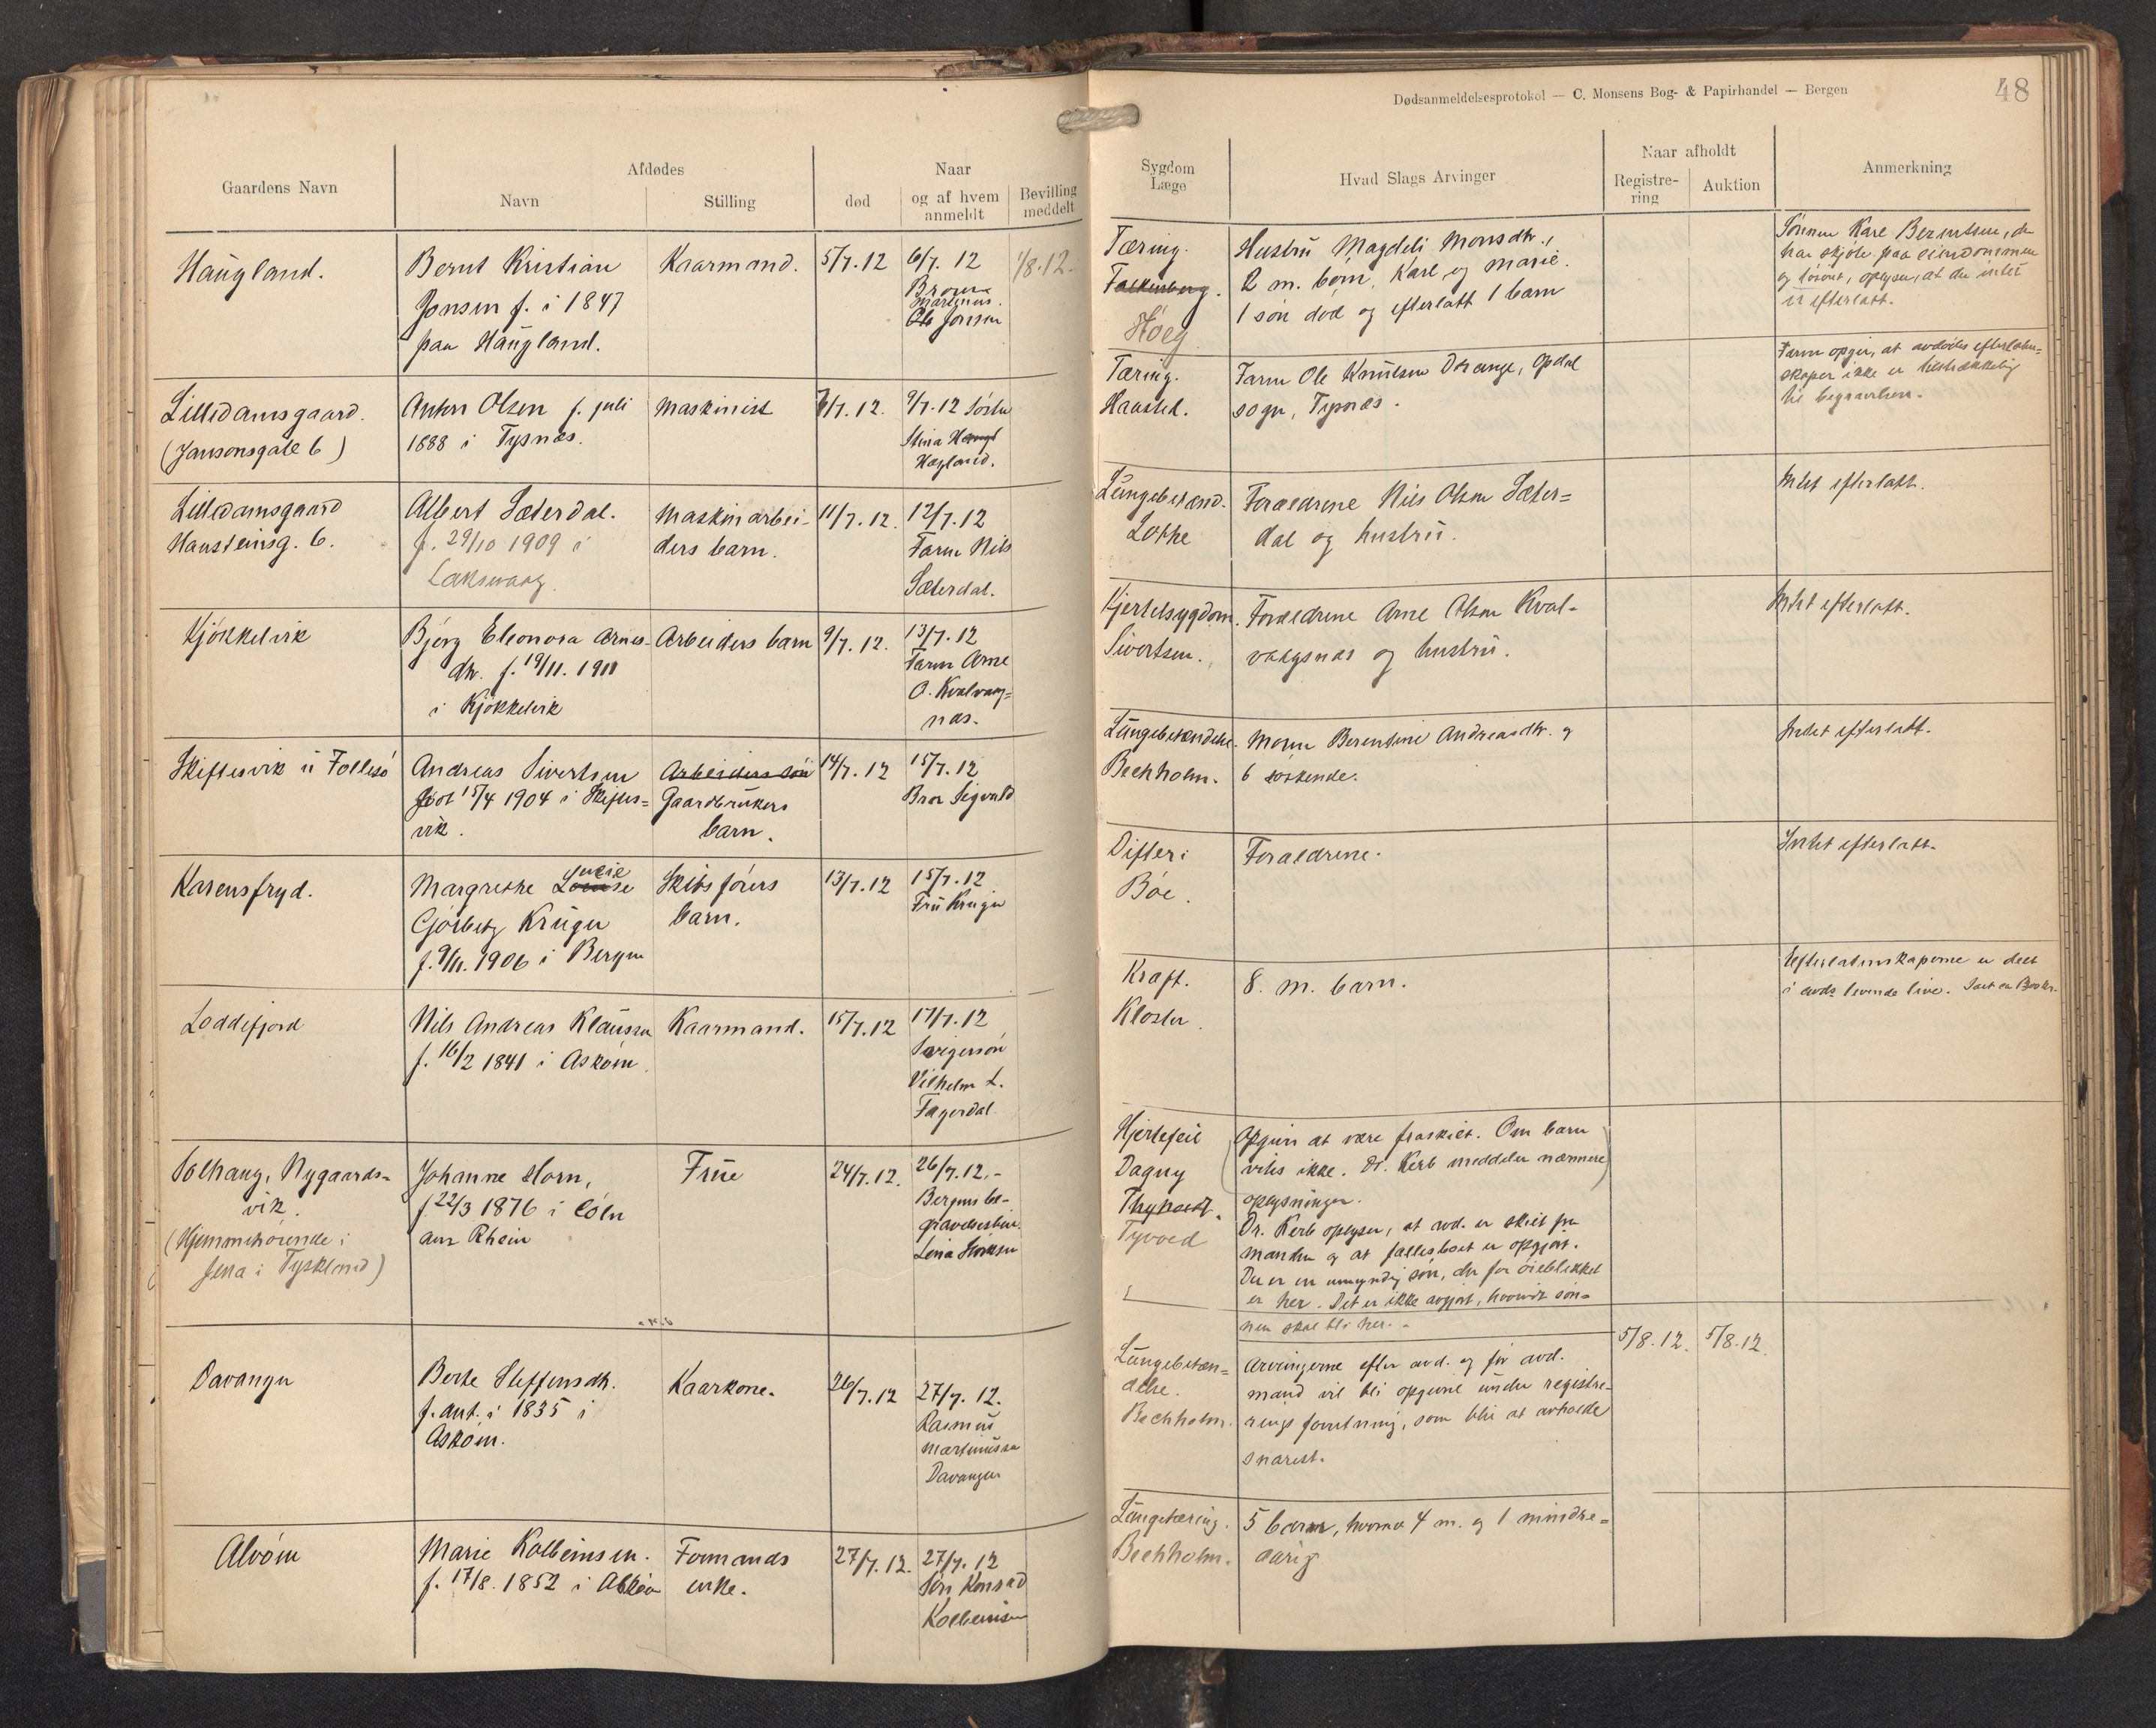 Dødsanmeldelsesprotokol — C. Monsens Bog- & Papirhandel — Bergen
48
Gaardens Navn
Afdødes
Navn
Stilling
Naar
død
og af hvem
anmeldt
Bevilling
meddelt
Haugland.
Bernt Kristian
Jonsen f. i 1847
paa Haugland.
Kaarmand.
5/7.12
6/7. 12
Martinus
Ole Jonsen
1/8.12.
Lilledamsgaard.
(Jansonsgate 6)
Anton Olsen f. juli
1888 i Tysnæs.
Maskinist
9/7.12 Søster
Stina
Hagland.
Lilledamsgaard
Hansteinsg. 6.
Albert Sæterdal.
f. 29/10 1909 i
Laksevaag
Maskinarbei-
ders barn.
11/7.12.
12/7.12
Faren Nils
Sæterdal.
Kjøkkelvik
Bjerg Eleonora Arnes-
dtr. f. 19/11. 1911
i Kjøkkelvik
Arbeiders barn
9/7.12.
13/7.12
Faren Arne
O. Kvalvaag=
næs.
Skiftesvik u Follesø
Andreas Sivertsen
født 15/4 1904 i Skiftes=
vik.
Arbeiders søn
Gaardbrukers
barn.
14/7.12
15/7.12
Bror Sigvald
Karensfryd.
Margrethe Louise
Gjørbitz Krüger
f. 9/11. 1906 i Bergen
Skibsførers
barn.
13/7.12
15/7.12
Fru Krüger
Loddefjord
Nils Andreas Klausen
f. 16/2 1841 i Askøen.
Kaarmand.
15/7.12
17/7.12
Svigersøn
Vilhelm L.
Fagerdal.
Solhaug, Nygaards=
vik.
(Hjemmehørende i
Jena i Tyskland)
Johanne Horn,
f 22/3 1876 i Cöln
am Rhein
Frue
24/7.12.
26/7.12.-
Bergens be-
gravelsesbur.
Davanger
Berte Steffensdtr.
f. ant. i 1835 i
Askøen.
Kaarkone.
26/7.12
27/7. 12.
Rasmus
Martinussen
Davanger
Alvøen
Marie Kolbeinsen.
f. 17/8. 1852 i Askøen
Formands
enke.
27/7.12.
27/7. 12
Søn Konrad
Kolbeinsen
Sygdom
Læge
Hvad Slags Arvinger
Naar afholdt
Registre-
ring
Auktion
Anmerkning
Tæring.
Falkenberg.
Høeg
Hustru Magdeli Monsdtr.,
2 m. børn, Karl og Marie.
1 søn død og efterlatt 1 barn
Sønnen Karl Berntsen, der
har skjøte paa eiendommen
og løsøret, oplyser, at der intet
er efterlatt.
Tæring.
Hansted.
Faren Ole Knutsen Drange, Opdal
sogn, Tysnæs.
Faren opgir, at avdødes efterlaten=
skaper ikke er tilstrækkelig
til begravelsen.
Lungebetænd.
Lothe
Forældrene Nils Olsen Sæter=
dal og hustru.
Intet efterlatt.
Kjertelsygdom.
Sivertsen.
Forældrene Arne Olsen Kval-
vaagsnæs og hustru.
Intet efterlatt.
Lungebetændelse.
Bechholm.
Moren Berentine Andreasdtr. og
6 søskende.
Intet efterlatt.
Difteri
Bøe.
Forældrene.
Intet efterlatt.
Kræft.
Kloster.
8. m. barn.
Efterlatenskaperne er delt
i avdøs levende live.
Hjertefeil
Dagny
Tyvoed
Opgives at være fraskilt. Om barn
vites ikke. Dr. Kerb meddeler nærmere
oplysninger.
Dr. Kerb oplyser, at avd. er skilt fra
manden og at fællesboet er opgjort.
Der er en umyndig søn, der for øieblikket
er her. Det er ikke avgjort, hvorvidt søn=
nen skal bli her.-
Lungebetæn=
delse.
Bechholm.
Arvingerne efter avd. og før avd.
mand vil bli opgivne under registre-
rings forretning, som blir at avholde
snarest.
5/8.12.
5/8.12.
Lungetæring.
Bechholm.
5 barn, hvorav 4 m. og 1 mindre=
aarig